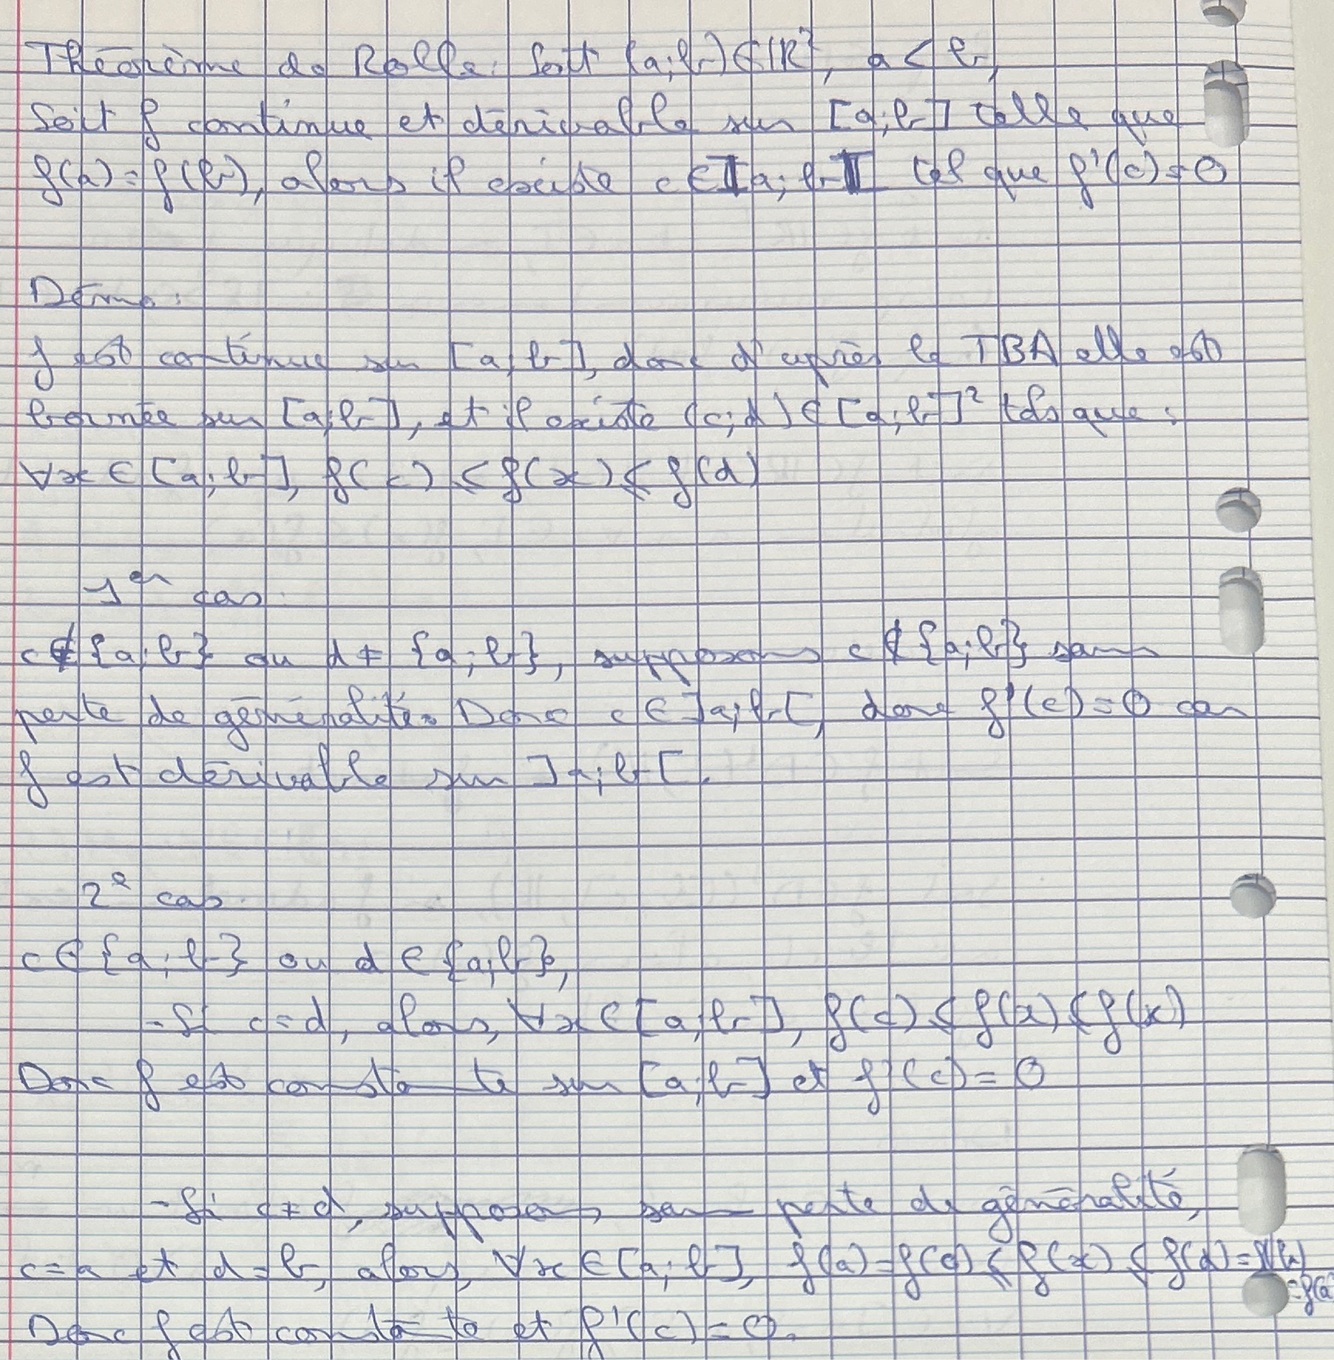 Théorème de Rolle : Soit (a;b) ∈ ℝ², a < b,
Soit f continue et dérivable sur [a;b] telle que
f(a) = f(b), alors il existe c ∈ ]a; b[ tel que f'(c) = 0
Démo :
f est continue sur [a;b], donc d'après le TBA elle est
bornée sur [a;b], et il existe (c;d) ∈ [a;b]² tels que :
∀x ∈ [a;b], f(c) ≤ f(x) ≤ f(d)
1er cas.
c ∉ {a;b} ou d ≠ {a;b}, supposons c ∉ {a;b} sans
perte de généralité. Donc c ∈ ]a;b[, donc f'(c) = 0 car
f est dérivable sur ]a;b[.
2e cas.
c ∈ {a;b} ou d ∈ {a;b},
- Si c = d, alors, ∀x ∈ [a;b], f(c) ≤ f(x) ≤ f(x)
Donc f est constante sur [a;b] et f'(c) = 0
- Si c ≠ d, supposons, sans perte de généralité,
c = a et d = b, alors, ∀x ∈ [a;b], f(a) = f(c) ≤ f(x) ≤ f(d) = f(b)
= f(a)
Donc f est constante et f'(c) = 0.